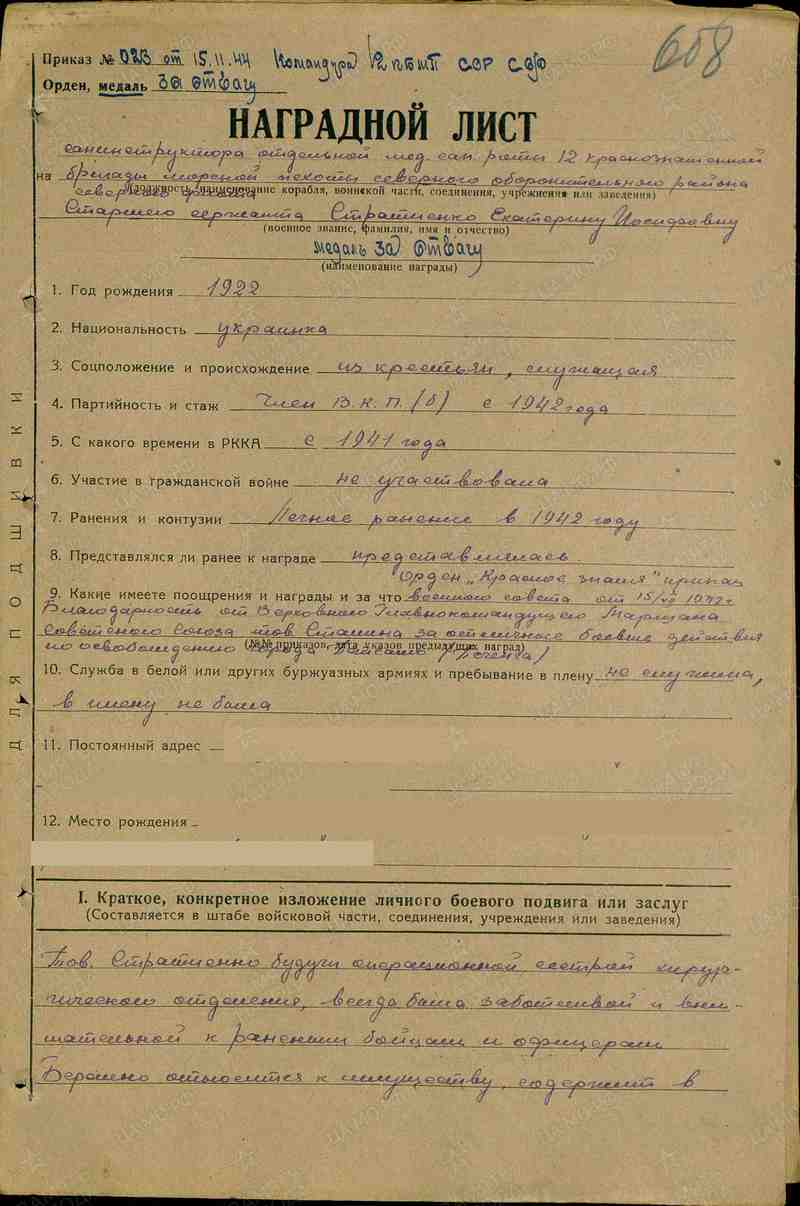 658
Приказ № 023 от 15.11.44 Командира 12 КБМП СОР СФ
Орден, медаль За отвагу
НАГРАДНОЙ ЛИСТ
санинструктора отдельной мед. сан. роты 12 Краснознаменной
на бригады морской пехоты северного оборонительного района
северного
(должность, наименование корабля, воинской части, соединения, учреждения или заведения)
Старшего сержанта Стратиенко Екатерину
(военное звание, фамилия, имя и отчество)
медаль За Отвагу
(наименование награды)
1. Год рождения 1922
2. Национальность украинка
3. Соцположение и происхождение из крестьян, служащая
4. Партийность и стаж Член В.К.П.(б) с 1942 года
5. С какого времени в РККА с 1941 года
6. Участие в гражданской войне не участвовала
7. Ранения и контузии Легкое ранение в 1942 году
8. Представлялся ли ранее к награде представлялась
Орден „Красное знамя" приказ
9. Какие имеете поощрения и награды и за что военного совета от 1942 г
Благодарность от Верховного Главнокомандующего Маршала
Советского Союза тов. Сталина за отличные боевые действия
по освобождению города (Печенга)
(№№ приказов, дата указов предыдущих наград)
10. Служба в белой или других буржуазных армиях и пребывание в плену не служила,
в плену не была
11. Постоянный адрес
12. Место рождения
I. Краткое, конкретное изложение личного боевого подвига или заслуг
(Составляется в штабе войсковой части, соединения, учреждения или заведения)
Тов. Стратиенко будучи операционной сестрой хирур-
гического отделения, всегда была заботливой и вни-
мательной к раненым бойцам и офицерам
Бережно относится к имуществу, содержит в
ДЛЯ ПОДШИВКИ